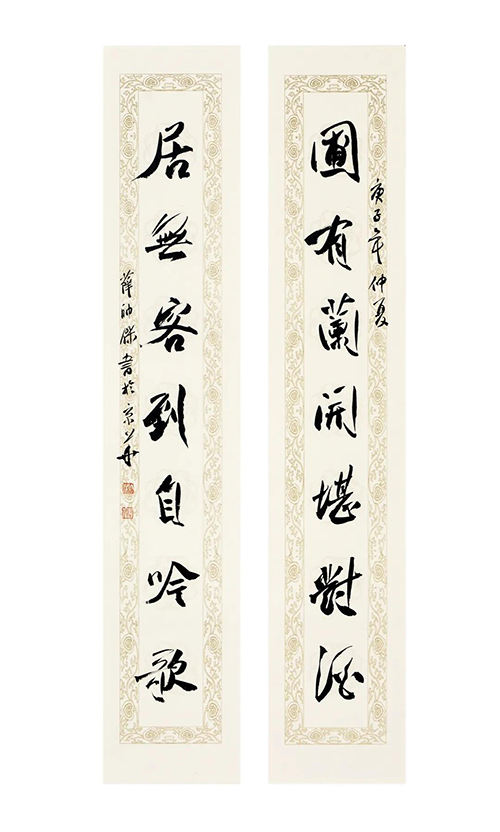 圃有蘭開堪對酒
庚子年仲夏
居無客到自吟歌
薛帥傑書於京